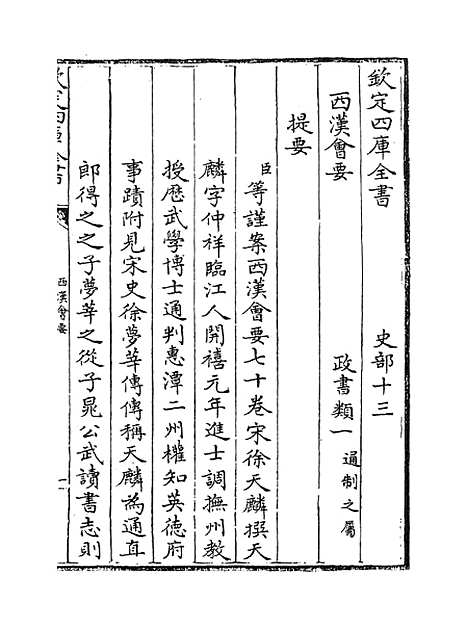 欽定四庫全書　史部十三
西漢會要　政書類一通制之屬
提要
臣等謹案西漢會要七十卷宋徐天麟撰天
麟字仲祥臨江人開禧元年進士調撫州教
授歴武學博士通判惠潭二州權知英徳府
事蹟附見宋史徐夢莘傳傳稱天麟為通直
郎得之之子夢莘之從子晁公武讀書志則
欽定四庫全書
西漢會要
一